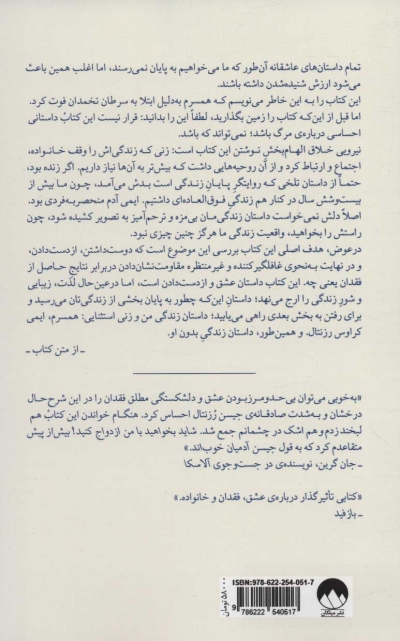 تمام داستان‌های عاشقانه آن‌طور که ما می‌خواهیم به پایان نمی‌رسند، اما اغلب همین باعث
می‌شود ارزش شنیده‌شدن داشته باشند.
این کتاب را به این خاطر می‌نویسم که همسرم به‌دلیل ابتلا به سرطان تخمدان فوت کرد.
اما قبل از این‌که کتاب را زمین بگذارید، لطفاً این را بدانید: قرار نیست این کتاب داستانی
احساسی درباره‌ی مرگ باشد؛ نمی‌تواند که باشد.
نیرویی خلاق الهام‌بخش نوشتن این کتاب است: زنی که زندگی‌اش را وقف خانواده،
اجتماع و ارتباط کرد و از آن روحیه‌هایی داشت که بیش‌تر به آن‌ها نیاز داریم. اگر زنده بود،
حتماً از داستان تلخی که روایتگر پایان زندگی است بدش می‌آمد، چون ما بیش از
بیست‌وشش سال در کنار هم زندگی فوق‌العاده‌ای داشتیم. ایمی آدم منحصربه‌فردی بود.
اصلاً دلش نمی‌خواست داستان زندگی‌مان بی‌مزه و ترحم‌آمیز به تصویر کشیده شود، چون
راستش را بخواهید، واقعیت زندگی ما هرگز چنین چیزی نبود.
درعوض، هدف اصلی این کتاب بررسی این موضوع است که دوست‌داشتن، ازدست‌دادن،
و در نهایت به‌نحوی غافلگیرکننده و غیرمنتظره مقاومت‌نشان‌دادن دربرابر نتایج حاصل از
فقدان یعنی چه. این کتاب داستان عشق و ازدست‌دادن است، اما درعین‌حال لذّت، زیبایی
و شور زندگی را ارج می‌نهد؛ داستان این‌که چطور به پایان بخشی از زندگی‌تان می‌رسید و
برای رفتن به بخش بعدی راهی می‌یابید؛ داستان زندگی من و زنی استثنایی: همسرم، ایمی
کراوس رزنتال. و همین‌طور، داستان زندگی بدون او.
ـ از متن کتاب ـ
«به‌خوبی می‌توان بی‌حدومرزبودن عشق و دلشکستگی مطلق فقدان را در این شرح‌حال
درخشان و به‌شدت صادقانه‌ی جیسن رُزنتال احساس کرد. هنگام خواندن این کتاب هم
لبخند زدم و هم اشک در چشمانم جمع شد. شاید بخواهید با من ازدواج کنید! بیش از پیش
متقاعدم کرد که به قول جیسن آدمیان خوب‌اند.»
ـ جان گرین، نویسنده‌ی در جست‌وجوی آلاسکا
«کتابی تأثیرگذار درباره‌ی عشق، فقدان و خانواده.»
ـ بازفید
ISBN: 978-622-254-051-7
9 786222 540517
۵۸۰۰۰ تومان
نشر میلکان